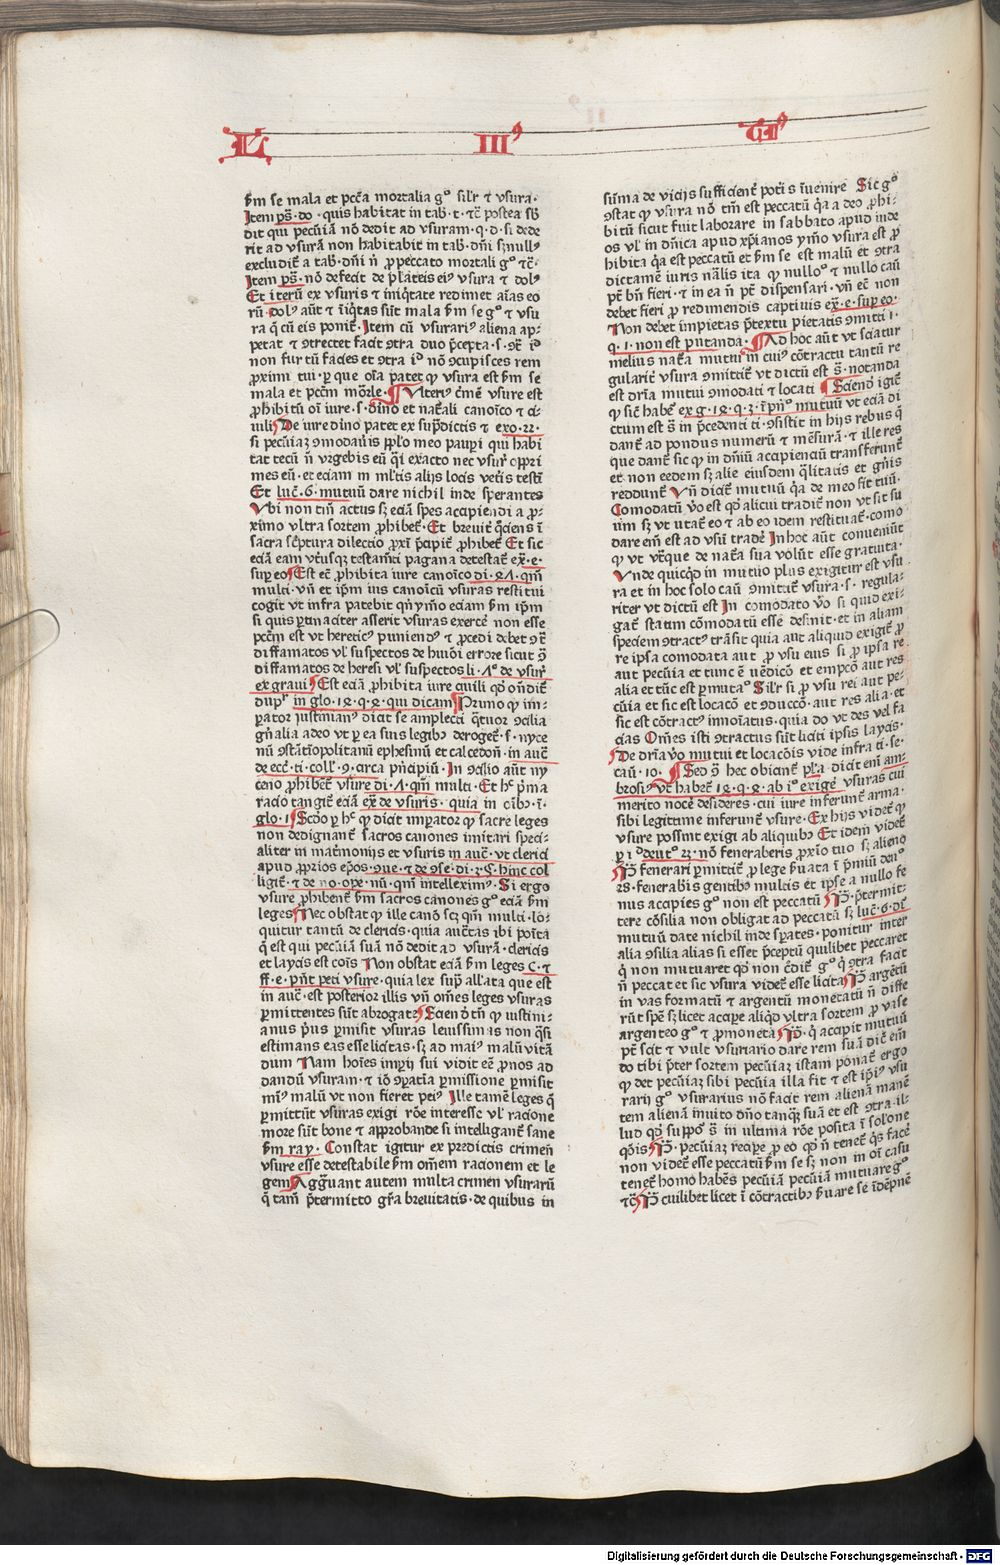 L III⁹ Tı⁹
ẜm se mala et pcc̄a mortalia g° sil'r ⁊ vsura·
Item ps̄·do·quis habitat in tab·t·⁊c̄ postea sb̄
dit qui pecūiā nō dedit ad vsuram·q·d·si dede
rit ad vsurā non habitabit in tab·dn̄i sꝫ null⁹
excludit̄ a tab·dn̄i n̄ ꝓ peccato mortali g° ⁊c̄·
Item ps̄·nō defecit de plateis ei⁹ vsura ⁊ dol⁹
Et iterū ex vsuris ⁊ iniq̄tate redimet aīas eo
rū·dol⁹ aūt ⁊ īiq̄tas sūt mala ẜm se g° ⁊ vsu
ra q̄ cū eis ponit̄·Item cū vsurari⁹ aliena ap⸗
petat ⁊ ꝯtrectet facit ꝯtra duo p̄cepta·s·ꝯͨ i°
non furtū facies et ꝯtra i° nō ꝯcupisces rem
ꝓximi tui·ꝑ que oīa patet ꝙ vsura est ẜm se
mala et pccm̄ mōrle·¶Vlteri⁹ cmē vsure est
ꝓhibitū oī iure·s·diīno et natʼali canoīco ⁊ ci⸗
uili¶De iure dīno patet ex sup̄dictis ⁊ exo·22·
si pecūiaꝫ ꝯmodaũis pp̄lo meo paupi qui habi
tat tecū n̄ vrgebis eū q̄i exacto nec vsur̄ oppri
mes eū·et eciam in ml̄tis alijs locis vetīs testī
Et luc̄·6·mutuū dare nichil inde sperantes
Vbi non tm̄ actus sꝫ eciā spes acapiendi a ꝓ⸗
ximo vltra sortem ꝓhibet̄·Et breuit̄ q̄ciens ī
sacra sc̄ptura dilectio ꝓxī p̄cipit̄ ꝓhibet̄ Et sic
eciā eam vt̄usqꝫ testam̄ci pagana detestat̄ ex̄·e·
sup eo¶Est ec̄ ꝓhibita iure canoīco di·47·qm̄
multi·vn̄ et ip̄m ius canoīcū vsuras restitui
cogit vt infra patebit qn̄ymō eciam ẜm ip̄m
si quis ꝑtinaciter asserit vsuras exercē non esse
pccm̄ est vt heretic⁹ puniend⁹ ⁊ ꝓcedi debet ꝯͨ
diffamatos vl' suspectos de hui⁹di errore sicut ꝯ̄
diffamatos de heresi vl' suspectos li·7°·de vsur̄
ex graui¶Est eciā ꝓhibita iure ciuili qḋ ondit̄
dupl̄r in glo·14·q·4·qui dicam¶Primo ꝙ im⸗
ꝑator iustinian⁹ dicit se amplecti q̄tuor ꝯcilia
gn̄alia adeo vt ꝑ ea suis legibꝫ deroget̄·s·nyce
nū ꝯstātīopolitanū ephesinū et calcedon̄·in auc̄
de ecc̄·ti·coll·9·circa pn̄cipiū·In ꝯcilio aūt ny
ceno ꝓhibent̄ vsure di·47·qm̄ multi·Et hͨ p̄ma
racio tangit̄ eciā ex̄ de vsuris·quia in oībꝫ·ī·
glo·1¶Scdo ꝑ hͨ ꝙ dicit imꝑator ꝙ sacre leges
non dedignant̄ sacros canones imitari speci⸗
aliter in mat̄monijs et vsuris in auc̄·vt clerici
apud ꝓprios ep̄os·ꝯue·⁊ de ꝯse·di·3·C·hinc col
ligit̄·⁊ de no·oꝑe·nū·qm̄ intellexim⁹·Si ergo
vsure ꝓhibent̄ ẜm sacros canones g° eciā ẜm
leges¶Nec obstat ꝙ ille canō scꝫ qm̄ multi·lo⸗
quitur tantū de clericis·quia auct̄as ibi poīta
q̄ est qui pecūiā suā nō dedit ad vsurā·clericis
et laycis est coīs Non obstat eciā ẜm leges C·⁊
ff·e·pn̄t peti vsure·quia lex sup̄ all'ata que est
in auc̄·est posterior illis vn̄ om̄es leges vsuras
ꝑmittentes sūt abrogate¶Sciendū tn̄ ꝙ iustini⸗
anus p̄us ꝑmisit vsuras leuissimas non q̄si
estimans eas esse licitas·sꝫ ad mai⁹ malū vitā
dum Nam hoīes imꝑij sui vidit eē ꝓnos ad
dandū vsuram·⁊ iō ꝯꝑatīa ꝑmissione ꝑmisit
mī⁹ malū vt non fieret pei⁹ Ille tamē leges q̄
ꝑmittūt vsuras exigi rōe interesse vl' racione
more sūt bone ⁊ approbande si intelligant̄ sane
ẜm ray·Constat igitur ex predictis crimen
vsure esse detestabile ẜm om̄em racionem et le
gem¶Aggͣuant autem multa crimen vsurarū
q̄ tam̄ p̄termitto gr̄a breuitatis·de quibus in
sūma de vicijs sufficient̄ poti⁹s īuenire Sic g°
ꝯstat ꝙ vsura nō tm̄ est peccatū q̄a a deo ꝓhi⸗
bitū sicut fuit laborare in sabbato apud iude
os vl' in dn̄ica apud xp̄ianos ymo vsura est ꝓ
hibita q̄a est peccatū et ẜm se est malū et ꝯtra
dictamē iuris nālis ita ꝙ nullo° ⁊ nullo cāū
pt̄ bn̄ fieri·⁊ in ea n̄ pt̄ dispensari·vn̄ ec̄ non
debet fieri ꝓ redimendis captiuis ex̄·e·sup eo·
Non debet impietas p̄textu pietatis ꝯmitti 1·
q·1·non est putanda·¶Ad hoc aūt vt sciatur
melius nat̄a mutui in cui⁹ cōtractu tantū re
gularit̄ vsura ꝯmittit̄ vt dictū est s̄·notanda
est drīa mutui ꝯmodati ⁊ locati ¶Sciend̄ igit̄
ꝙ sic habet̄ ex g·14·q·3·ī pn̄° mutuū vt eciā di
ctum est s̄ in p̄cedenti ti·ꝯsistit in hijs rebus q̄
dant̄ ad pondus numerū ⁊ mēsurā·⁊ ille res
que dant̄ sic ꝙ in dn̄iū accipienciū transferunt̄
et non eedem sꝫ alie eiusdem q̄litatis et gn̄is
reddunt̄ Vn̄ dicit̄ mutuū q̄a de meo fit tuū·
Comodatū v̄o est qḋ alicui tradit̄ non vt sit su
um sꝫ vt utat̄ eo ⁊ ab eo idem restituat̄·como
dare em̄ est ad vsū tradē Inhoc aūt conueniūt
ꝙ vt vt̄rqꝫ de nat̄a sua volūt esse gratuita·
Vnde quicqḋ in mutuo plus exigitur est vsu
ra et in hoc solo cāū ꝯmittit̄ vsura·s·regula⸗
riter vt dictū est In comodato v̄o si quid exi⸗
gat̄ statim cōmodatū esse desinit·et in aliam
speciem ꝯtract⁹ trāsit quia aut aliquid exigit̄ ꝓ
re ipsa comodata aut ꝓ vsu eius si ꝓ ipsa re
aut pecūia et tunc ē vēdicō et empcō aut res
alia et tūc est ꝑmuta° Sil'r si ꝓ vsu rei aut pe⸗
cūia et sic est locacō et ꝯduccō·aut res alia·et
sic est cōtract⁹ innoīatus·quia do vt des vel fa
cias Om̄es isti ꝯtractus sūt liciti ipsis laycis·
¶De drīa v̄o mutui et locacōis vide infra ti·se·
cāū·10·¶Sed ꝯ̄ hec obicit̄ pl'a dicit eni am⸗
brosi⁹·vt habet̄ 14·q·4·ab i°·exige vsuras cui
merito nocē desideres·cui iure inferunt̄ arma·
sibi legittime inferunt̄ vsure·Ex hijs videt̄ ꝙ
vsure possint exigi ab aliquibꝫ Et idem videt̄
ꝑ i° deut° 23·nō feneraberis ꝓxīo tuo sꝫ alieno
¶P̄ fenerari ꝑmittit̄ ꝓ lege ẜuata ī p̄miū deut°
28·fenerabis gentibꝫ multis et ipse a nullo fe
nus accipies g° non est peccatū ¶P̄·p̄termit⸗
tere cōsilia non obligat ad peccatū sꝫ luc̄·6·dr̄
mutuū date nichil inde sꝑates·ponitur inter
alia ꝯsilia alias si esset p̄ceptū quilibet peccaret
q̄ non mutuaret qḋ non c̄dit̄ g° q̄ ꝯtra facit
n̄ peccat et sic vsura videt̄ esse licita¶P̄ argētū
in vas formatū ⁊ argentū monetatū n̄ diffe
rūt spē sꝫ licet accipe aliqḋ vltra sortem ꝓ vase
argenteo g° ⁊ ꝓ moneta¶P̄·q̄ accipit mutuū
pt̄ scit ⁊ vult vsurario dare rem suā dic̄ em̄
do tibi p̄ter sortem pecūiaꝫ istam ponat̄ ergo
ꝙ det pecūiaꝫ sibi pecūia illa fit ⁊ est ip̄i⁹ vsu
rarij g° vsurarius nō facit rem alienā manē
tem alienā inuito dn̄o tanqꝫ suā et est ꝯtra il⸗
lud qḋ suppo° s̄ in ultima rōe posita ī sol'one
q̄ōis¶P̄·pecūiaꝫ recipe ꝓ eo qḋ n̄ tenet̄ q̇s facē
non videt̄ esse peccatū ẜm se sꝫ non in oī casu
tenet̄ homo habēs pecūiā pecūiā mutuare g°
⁊c̄¶P̄ cuilibet licet ī cōtractibꝫ ẜuare se īdēpnē
Digitalisierung gefördert durch die Deutsche Forschungsgemeinschaft - DFG